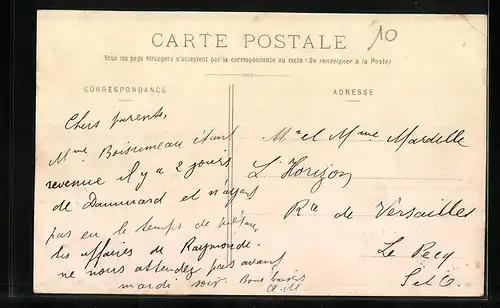 10
CARTE POSTALE
Tous les pays étrangers n'acceptent pas la correspondance au recto (Se renseigner à la Poste)
CORRESPONDANCE
Chers parents,
Mme Boisumeau étant
revenue il y a 2 jours
de Dammard et n'ayant
pas eu le temps de
les affaires de Raymonde.
ne nous attendez pas avant
mardi soir. Bons baisers
ADRESSE
Mr et Mme Mardelle
L'Horizon
Rte de Versailles
Le Pecq
S et O.